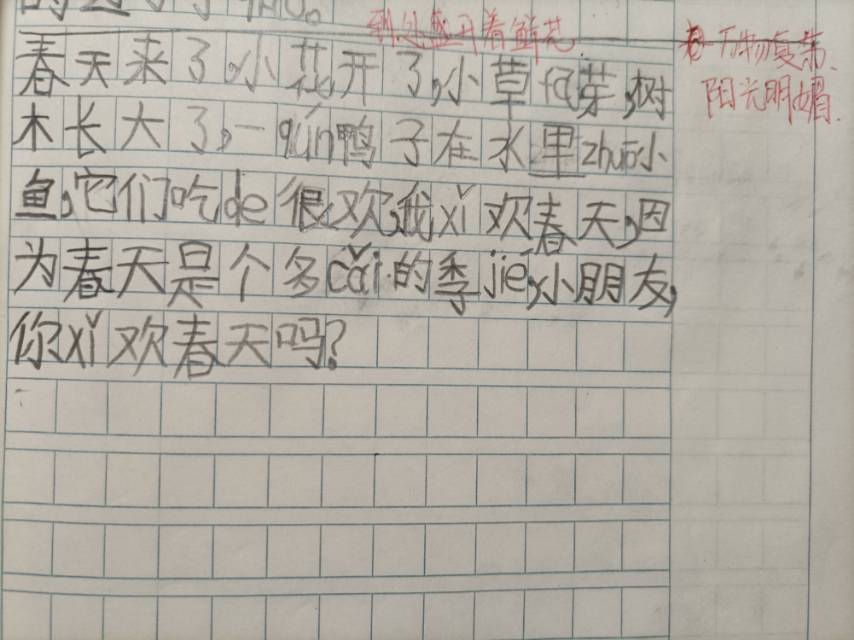 到处盛开着鲜花
春天来了,小花开了,小草fā芽,树
木长大了,一qún鸭子在水里zhuō小
鱼,它们吃de很欢,我xǐ欢春天,因
为春天是个多cǎi的季jié,小朋友,
你xǐ欢春天吗?
万物复苏、
阳光明媚、